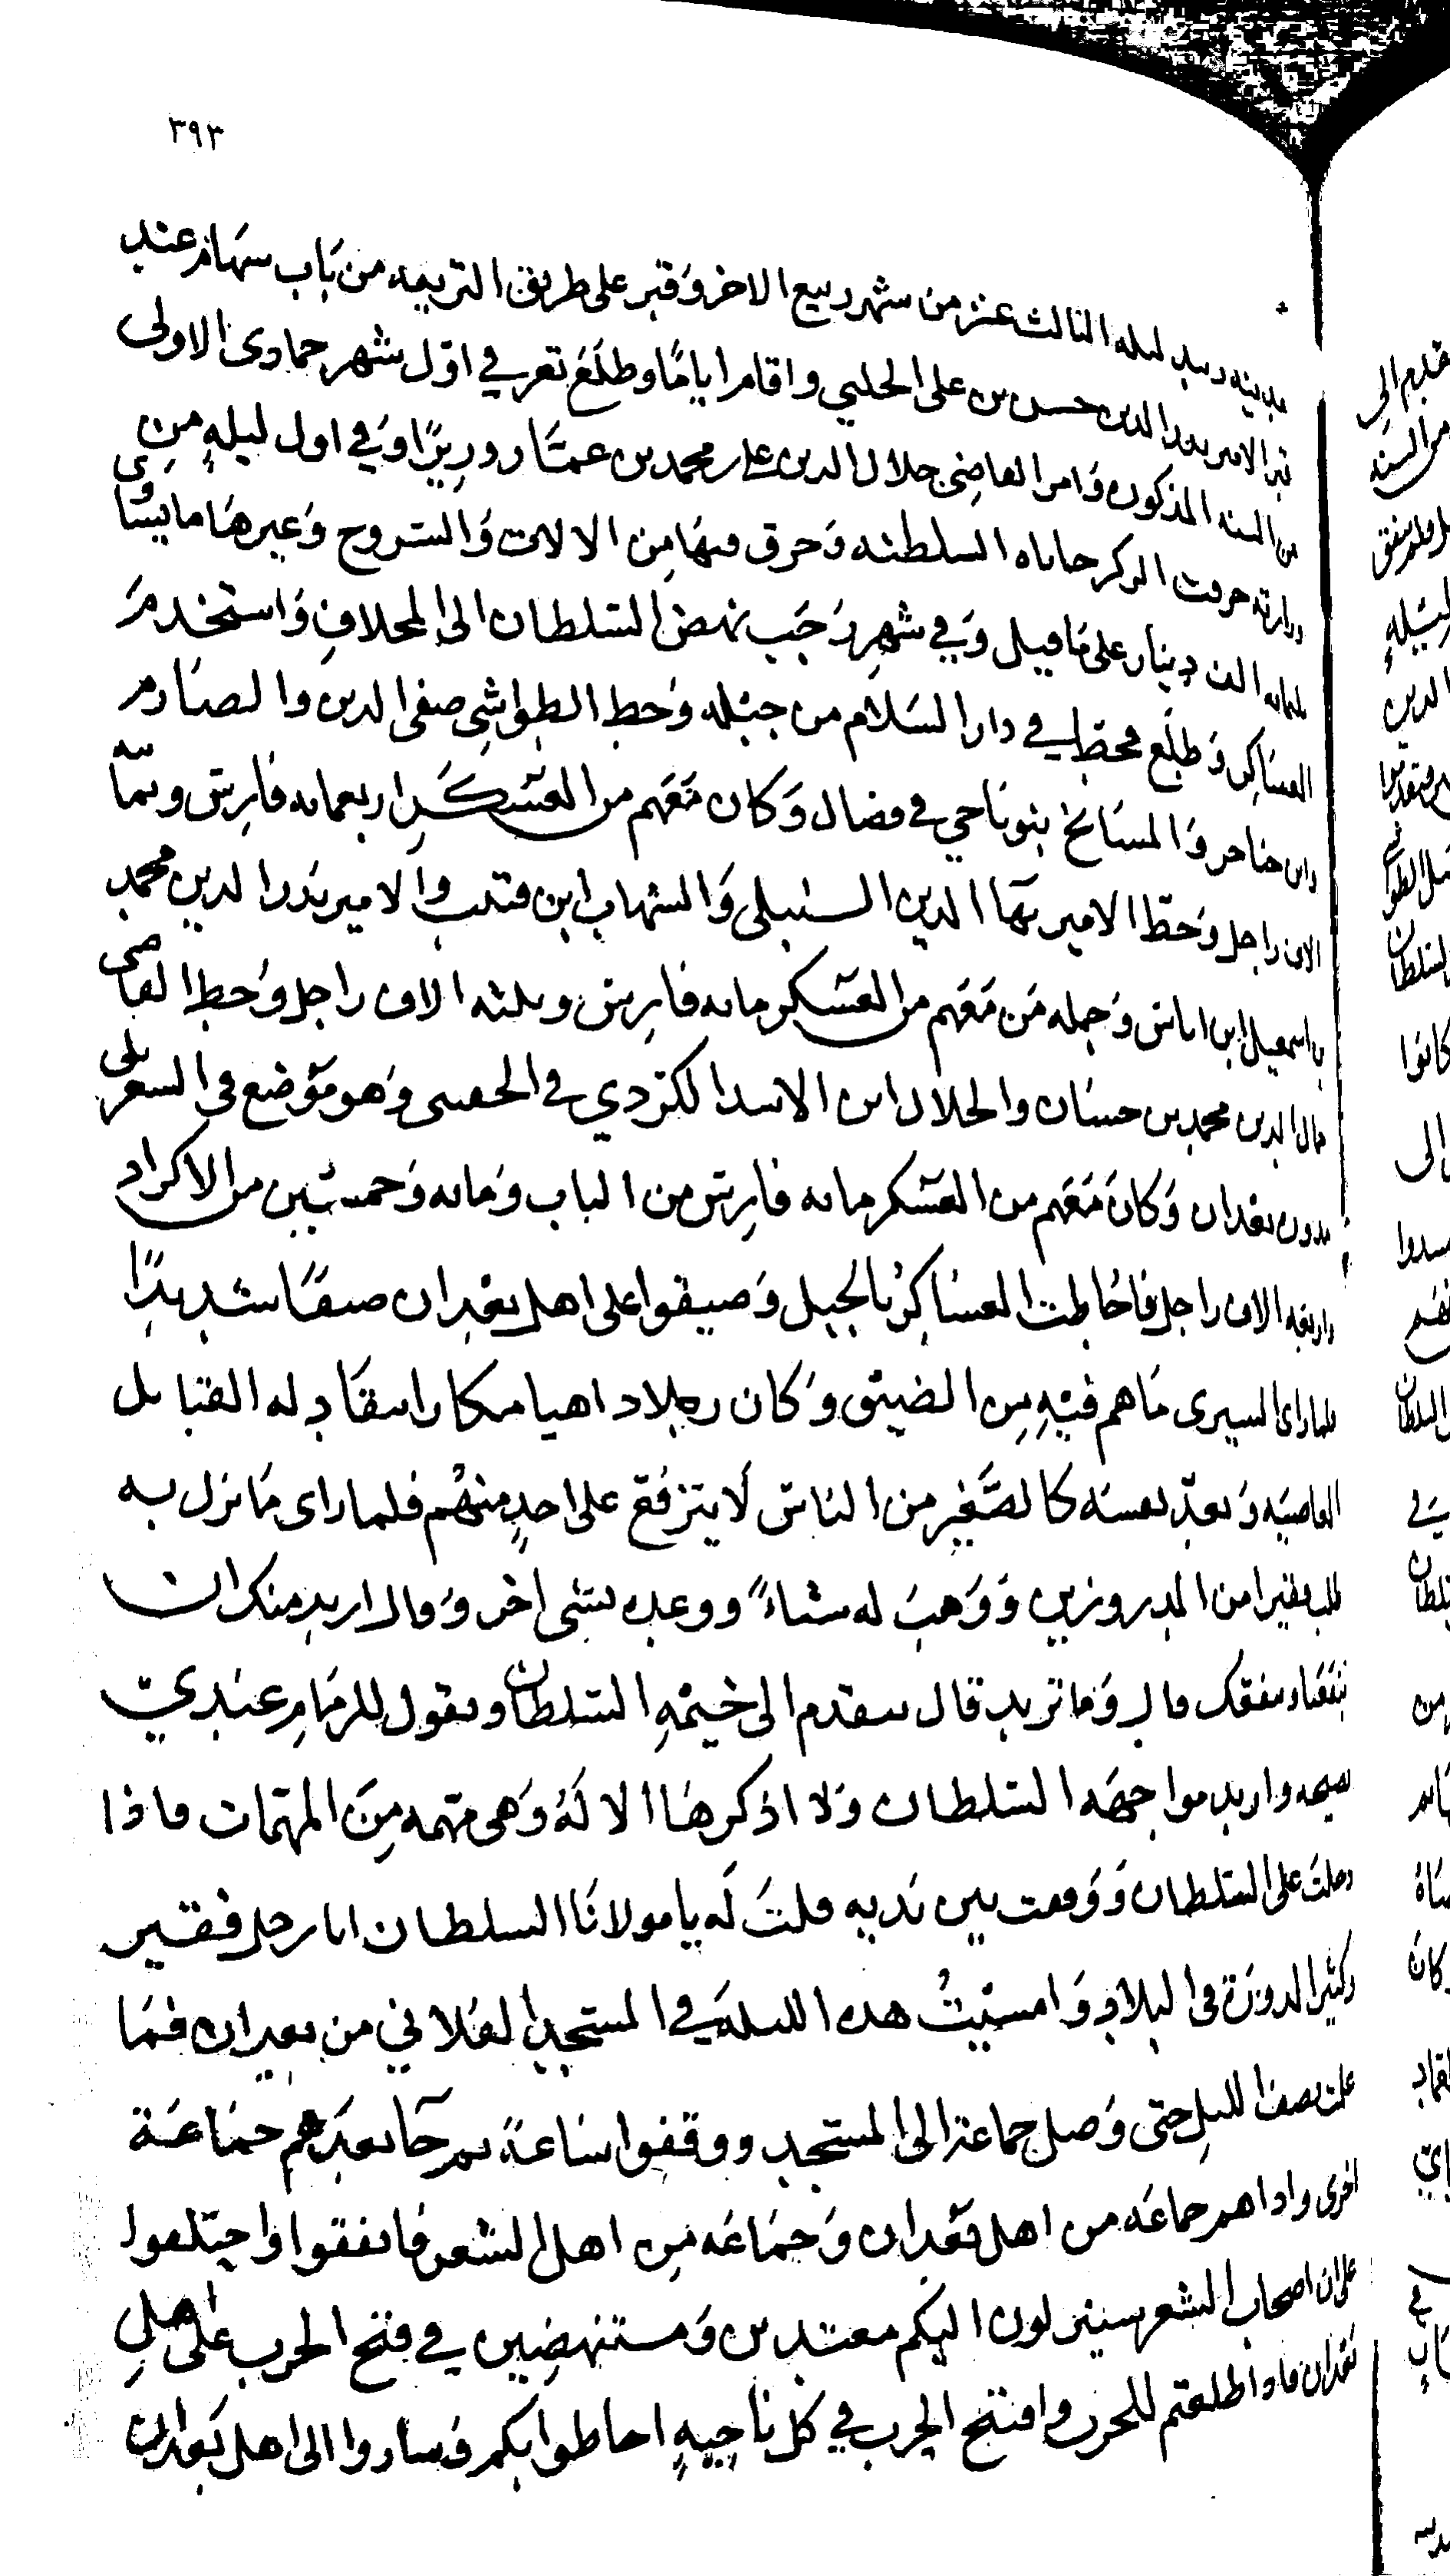 ٣٩٣
مدينه زبيد ليله الثالث عشر من شهر ربيع الاخر وَقبر على طريق التريبه من باب سهام عند
قبر الامير بدر الدين حسن بن على الحلبي واقام اياما وطلع تعز في اوّل شهر جمادى الاولى
من السنه المذكوره وَامر القاضي جلال الدين على بن محمد بن عمار وزيرًا وَفي اول ليلهٍ من
وزارته حرقت الركبخاناه السلطنه وَحرق فيها من الالات وَالسروج وَغيرهَا ما يساوى
الف دينار على مَا قيل وَفي شهرِ رَجَب نهض السلطان الى المخلاف وَاستخدم
العسَاكر وَطلع محطه في دار السَلام من جبله وَحط الطواشي صفي الدين والصَارم
وَالمسَايخ بنو نَاجي في وَكان مَعَهم من العسكر اربعمايه فارس وستمايه
الاف راجل وَحطّ الامير بهآ الدين السنبلي وَالشهاب ابن والامير بدر الدين محمد
بن اسمعيل ابن اياس وَجمله مَن مَعَهم من العسكر مايه فارس وثلثه الاف راجل وَحط القاضى
جمال الدين محمد بن حسَان والجلال ابن الاسد الكردي في وَهو مَوضع في السعر يلى
بعدان وَكانَ مَعَهم من العسكر مايه فارس من الباب وَمايه وَخمسين من الاكراد
واربعه الاف راجل فاحَاطت العسَاكرُ بالجبل وَضيقوا على اهل بعدان ضيقًا شديدًا
فلما راى السيرى مَا هم فيْهِ مِن الضيق وَكان رجلا داهيا مكارا تنقَاد له القبايل
العاصيَه وَيعدّ نفسَه كالصَّغير من الناس لَا يترفّع على احدٍ منهُم فلما راى مَا نزل به
طلب فقيرا من المدروزين وَوَهبَ له شياءً ووعده بشى اخر وَقال اريد منك ان
تنفعَنا وننفعك قال وَما تريد قال تتقدم الى خيمهِ السلطان وتقول للزمَام عندي
نصيحه واريد مواجهَه السلطان وَلا اذكرهَا الا لهُ وَهى مهمه مِنَ المهمّات فاذا
دخلتَ على السلطان وَوقفت بين يَديه قلتَ له يا مولانَا السلطان انا رجل فقير
وَكثير الدورَة في البلاد وَامسيْتُ هذه الليلهَ في المسجد الفلاني من بعدان فما
علمت نصف الليلِ حتى وَصل جماعة الى المسجد ووقفوا سَاعةً ثم جآ بَعدَهم جمَاعَة
اخرى واذا هم جماعَه من اهل بَعدان وَجمَاعَه مِن اهل الشعر فاتفقوا وَاحتلفوا
على ان اصحاب الشعر سينزلون اليكم معتذرين وَمستنهضِين في فتح الحرب على اهلِ
بَعدان فاذا طلعتم للحرب وافتتح الحرب في كل نَاحيهٍ احاطوا بكم فساروا الى اهل بَعدان